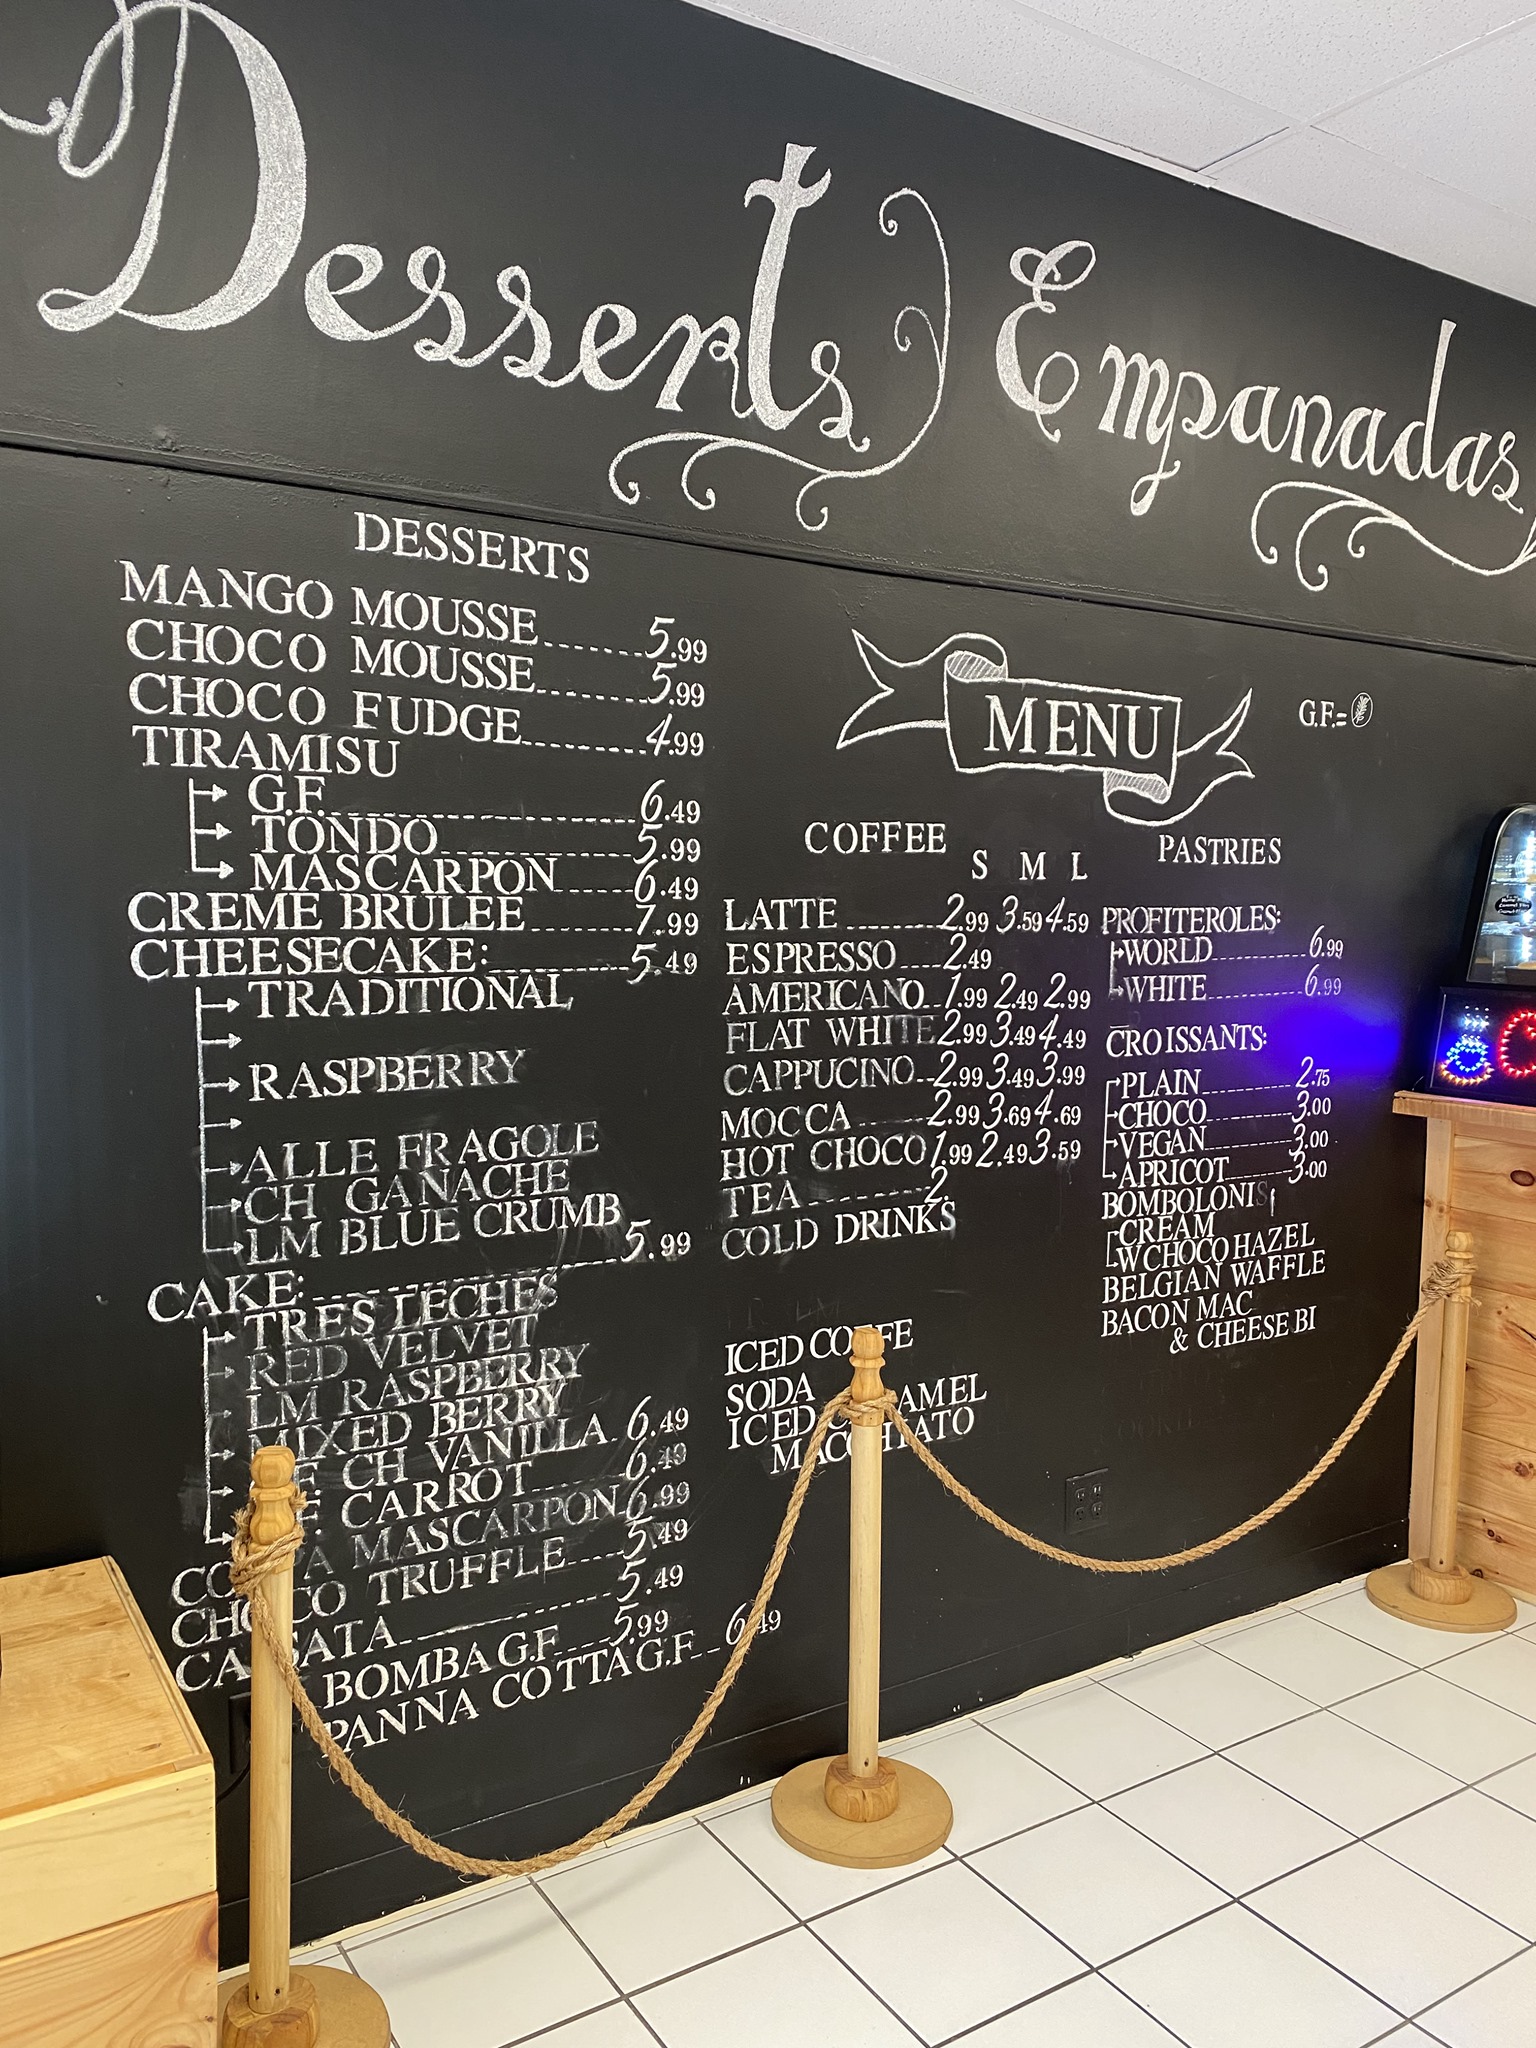 Desserts Empanadas
DESSERTS
MANGO MOUSSE 5.99
CHOCO MOUSSE 5.99
CHOCO FUDGE 4.99
TIRAMISU
G.F. 6.49
TONDO 5.99
MASCARPON 6.49
CREME BRULEE 7.99
CHEESECAKE: 5.49
TRADITIONAL
RASPBERRY
ALLE FRAGOLE
CH GANACHE
LM BLUE CRUMB
CAKE: 5.99
TRES LECHES
RED VELVET
LM RASPBERRY
MIXED BERRY
CH VANILLA 6.49
CARROT 6.49
MASCARPON 6.99
CHOCO TRUFFLE 5.49
5.49
BOMBA G.F. 5.99
PANNA COTTA G.F. 6.49
MENU
G.F.=
COFFEE
S M L
LATTE 2.99 3.59 4.59
ESPRESSO 2.49
AMERICANO 1.99 2.49 2.99
FLAT WHITE 2.99 3.49 4.49
CAPPUCINO 2.99 3.49 3.99
MOCCA 2.99 3.69 4.69
HOT CHOCO 1.99 2.49 3.59
TEA 2.
COLD DRINKS
ICED COFFE
SODA
ICED CARAMEL
MACCHIATO
PASTRIES
PROFITEROLES:
WORLD 6.99
WHITE 6.99
CROISSANTS:
PLAIN 2.75
CHOCO 3.00
VEGAN 3.00
APRICOT 3.00
BOMBOLONIS
CREAM
W CHOCO HAZEL
BELGIAN WAFFLE
BACON MAC
& CHEESE BI